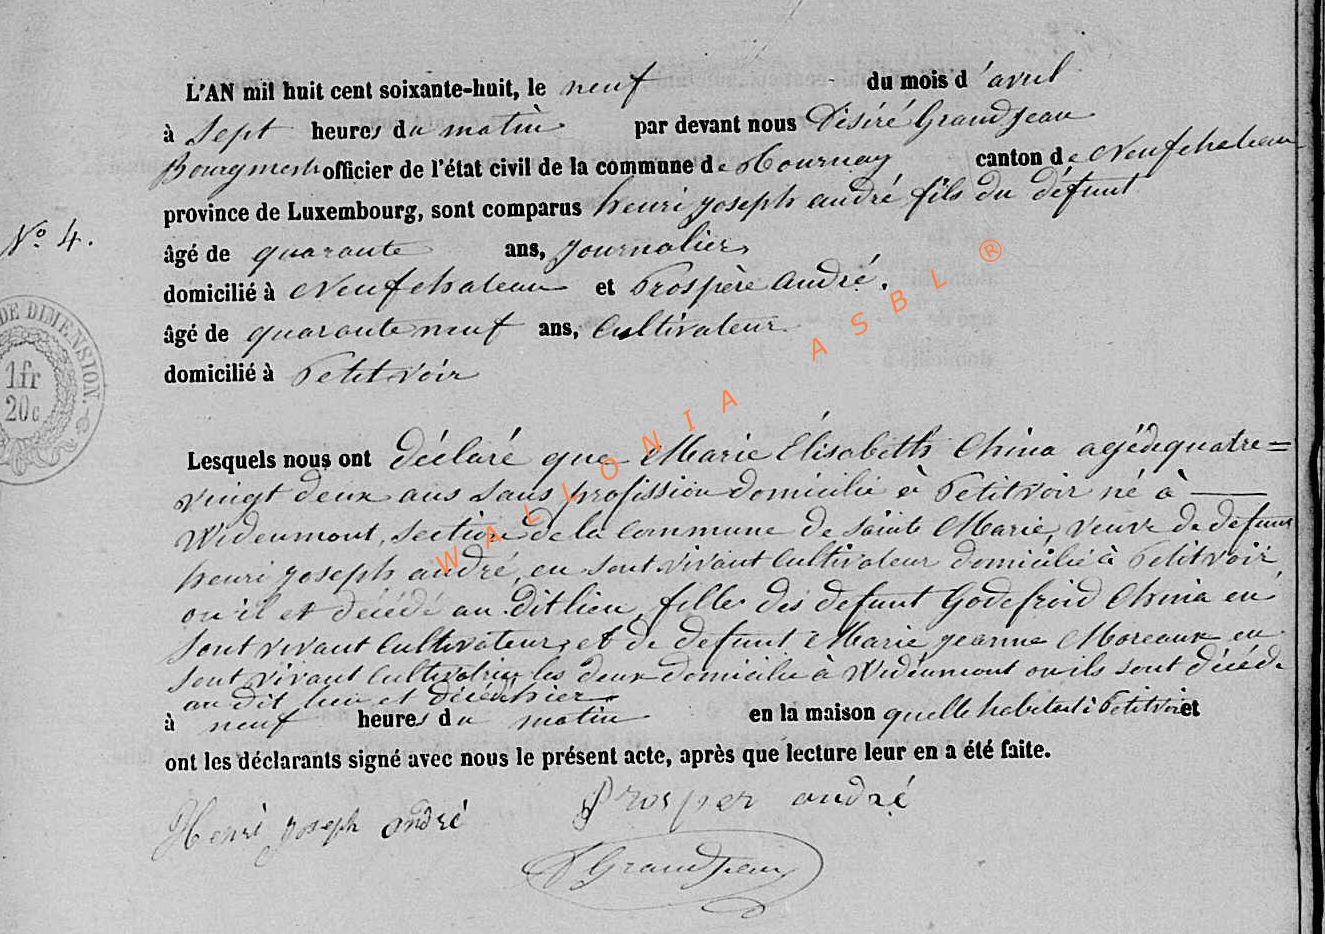 L'AN mil huit cent soixante-huit, le neuf du mois d'avril
à Sept heures du matin par devant nous Désiré Grandjean
Bourgmestre officier de l'état civil de la commune de Tournay canton de Neufchateau
province de Luxembourg, sont comparus henri joseph andré fils du défunt
N.o 4.
âgé de quarante ans, journalier
domicilié à Neufchateau et Prospère André.
âgé de quarante neuf ans, Cultivateur
domicilié à Petitvoir
DE DIMENSION.
1fr
20c
Lesquels nous ont déclaré que Marie Élisabeth China agé de quatre=
vingt deux ans sans profission domicilié à Petitvoir né à
Wideumont, section de la commune de Sainte Marie, veuve de defunt
henri joseph andré, en sont vivant Cultivateur domicilié à Petitvoir
ou il et décédé au dit lieu, fille des defunt Godefroid China en
sont vivant Cultivateur, et de defunt Marie jeanne Moreaux en
sont vivant Cultivatrice les deux domicilié à Wideumont ou ils sont décédé
au dit lieu et décédé hier
à neuf heures du matin en la maison quelle habitait à Petitvoir et
ont les déclarants signé avec nous le présent acte, après que lecture leur en a été faite.
Henri joseph andré Prosper andré
D Grandjean
WALLONIA ASBL ®